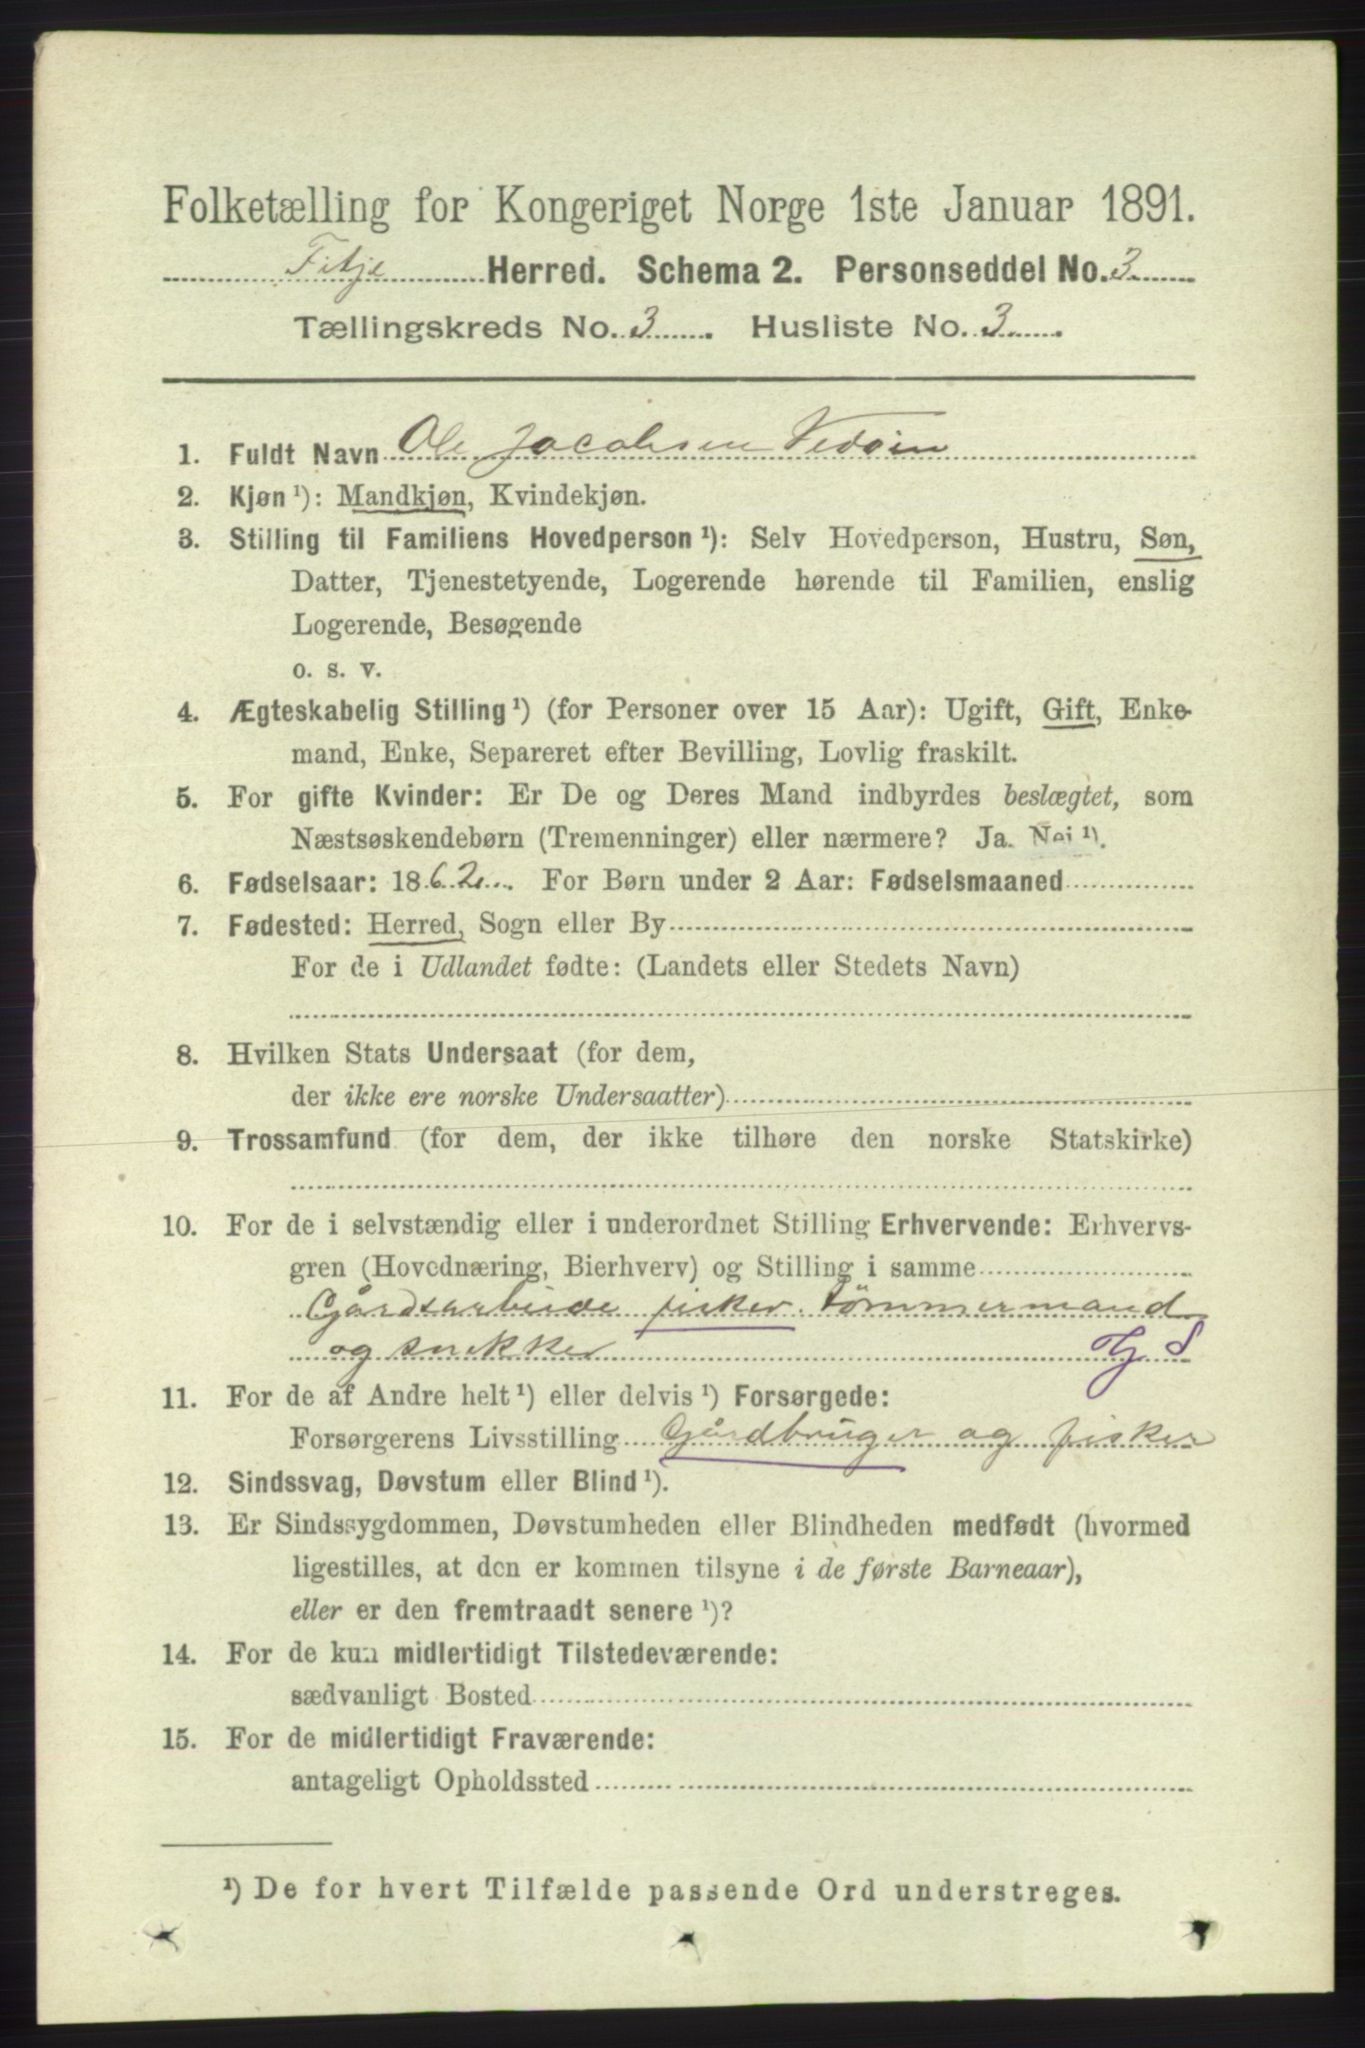 Folketælling for Kongeriget Norge 1ste Januar 1891.
Fitje Herred. Schema 2. Personseddel No. 3
Tællingskreds No. 3. Husliste No. 3.
1. Fuldt Navn Ole Jacobsen Vedøen
2. Kjøn ¹): Mandkjøn, Kvindekjøn.
3. Stilling til Familiens Hovedperson ¹): Selv Hovedperson, Hustru, Søn,
Datter, Tjenestetyende, Logerende hørende til Familien, enslig
Logerende, Besøgende
o. s. v.
4. Ægteskabelig Stilling ¹) (for Personer over 15 Aar): Ugift, Gift, Enke-
mand, Enke, Separeret efter Bevilling, Lovlig fraskilt.
5. For gifte Kvinder: Er De og Deres Mand indbyrdes beslægtet, som
Næstsøskendebørn (Tremenninger) eller nærmere? Ja. Nei ¹).
6. Fødselsaar: 1862. For Børn under 2 Aar: Fødselsmaaned
7. Fødested: Herred, Sogn eller By
For de i Udlandet fødte: (Landets eller Stedets Navn)
8. Hvilken Stats Undersaat (for dem,
der ikke ere norske Undersaatter)
9. Trossamfund (for dem, der ikke tilhøre den norske Statskirke)
10. For de i selvstændig eller i underordnet Stilling Erhvervende: Erhvervs-
gren (Hovednæring, Bierhverv) og Stilling i samme
Gårdsarbeide fisker tømmermand
og snekker
11. For de af Andre helt ¹) eller delvis ¹) Forsørgede:
Forsørgerens Livsstilling Gårdbruger og fisker
12. Sindssvag, Døvstum eller Blind ¹).
13. Er Sindssygdommen, Døvstumheden eller Blindheden medfødt (hvormed
ligestilles, at den er kommen tilsyne i de første Barneaar),
eller er den fremtraadt senere ¹)?
14. For de kun midlertidigt Tilstedeværende:
sædvanligt Bosted
15. For de midlertidigt Fraværende:
antageligt Opholdssted
¹) De for hvert Tilfælde passende Ord understreges.